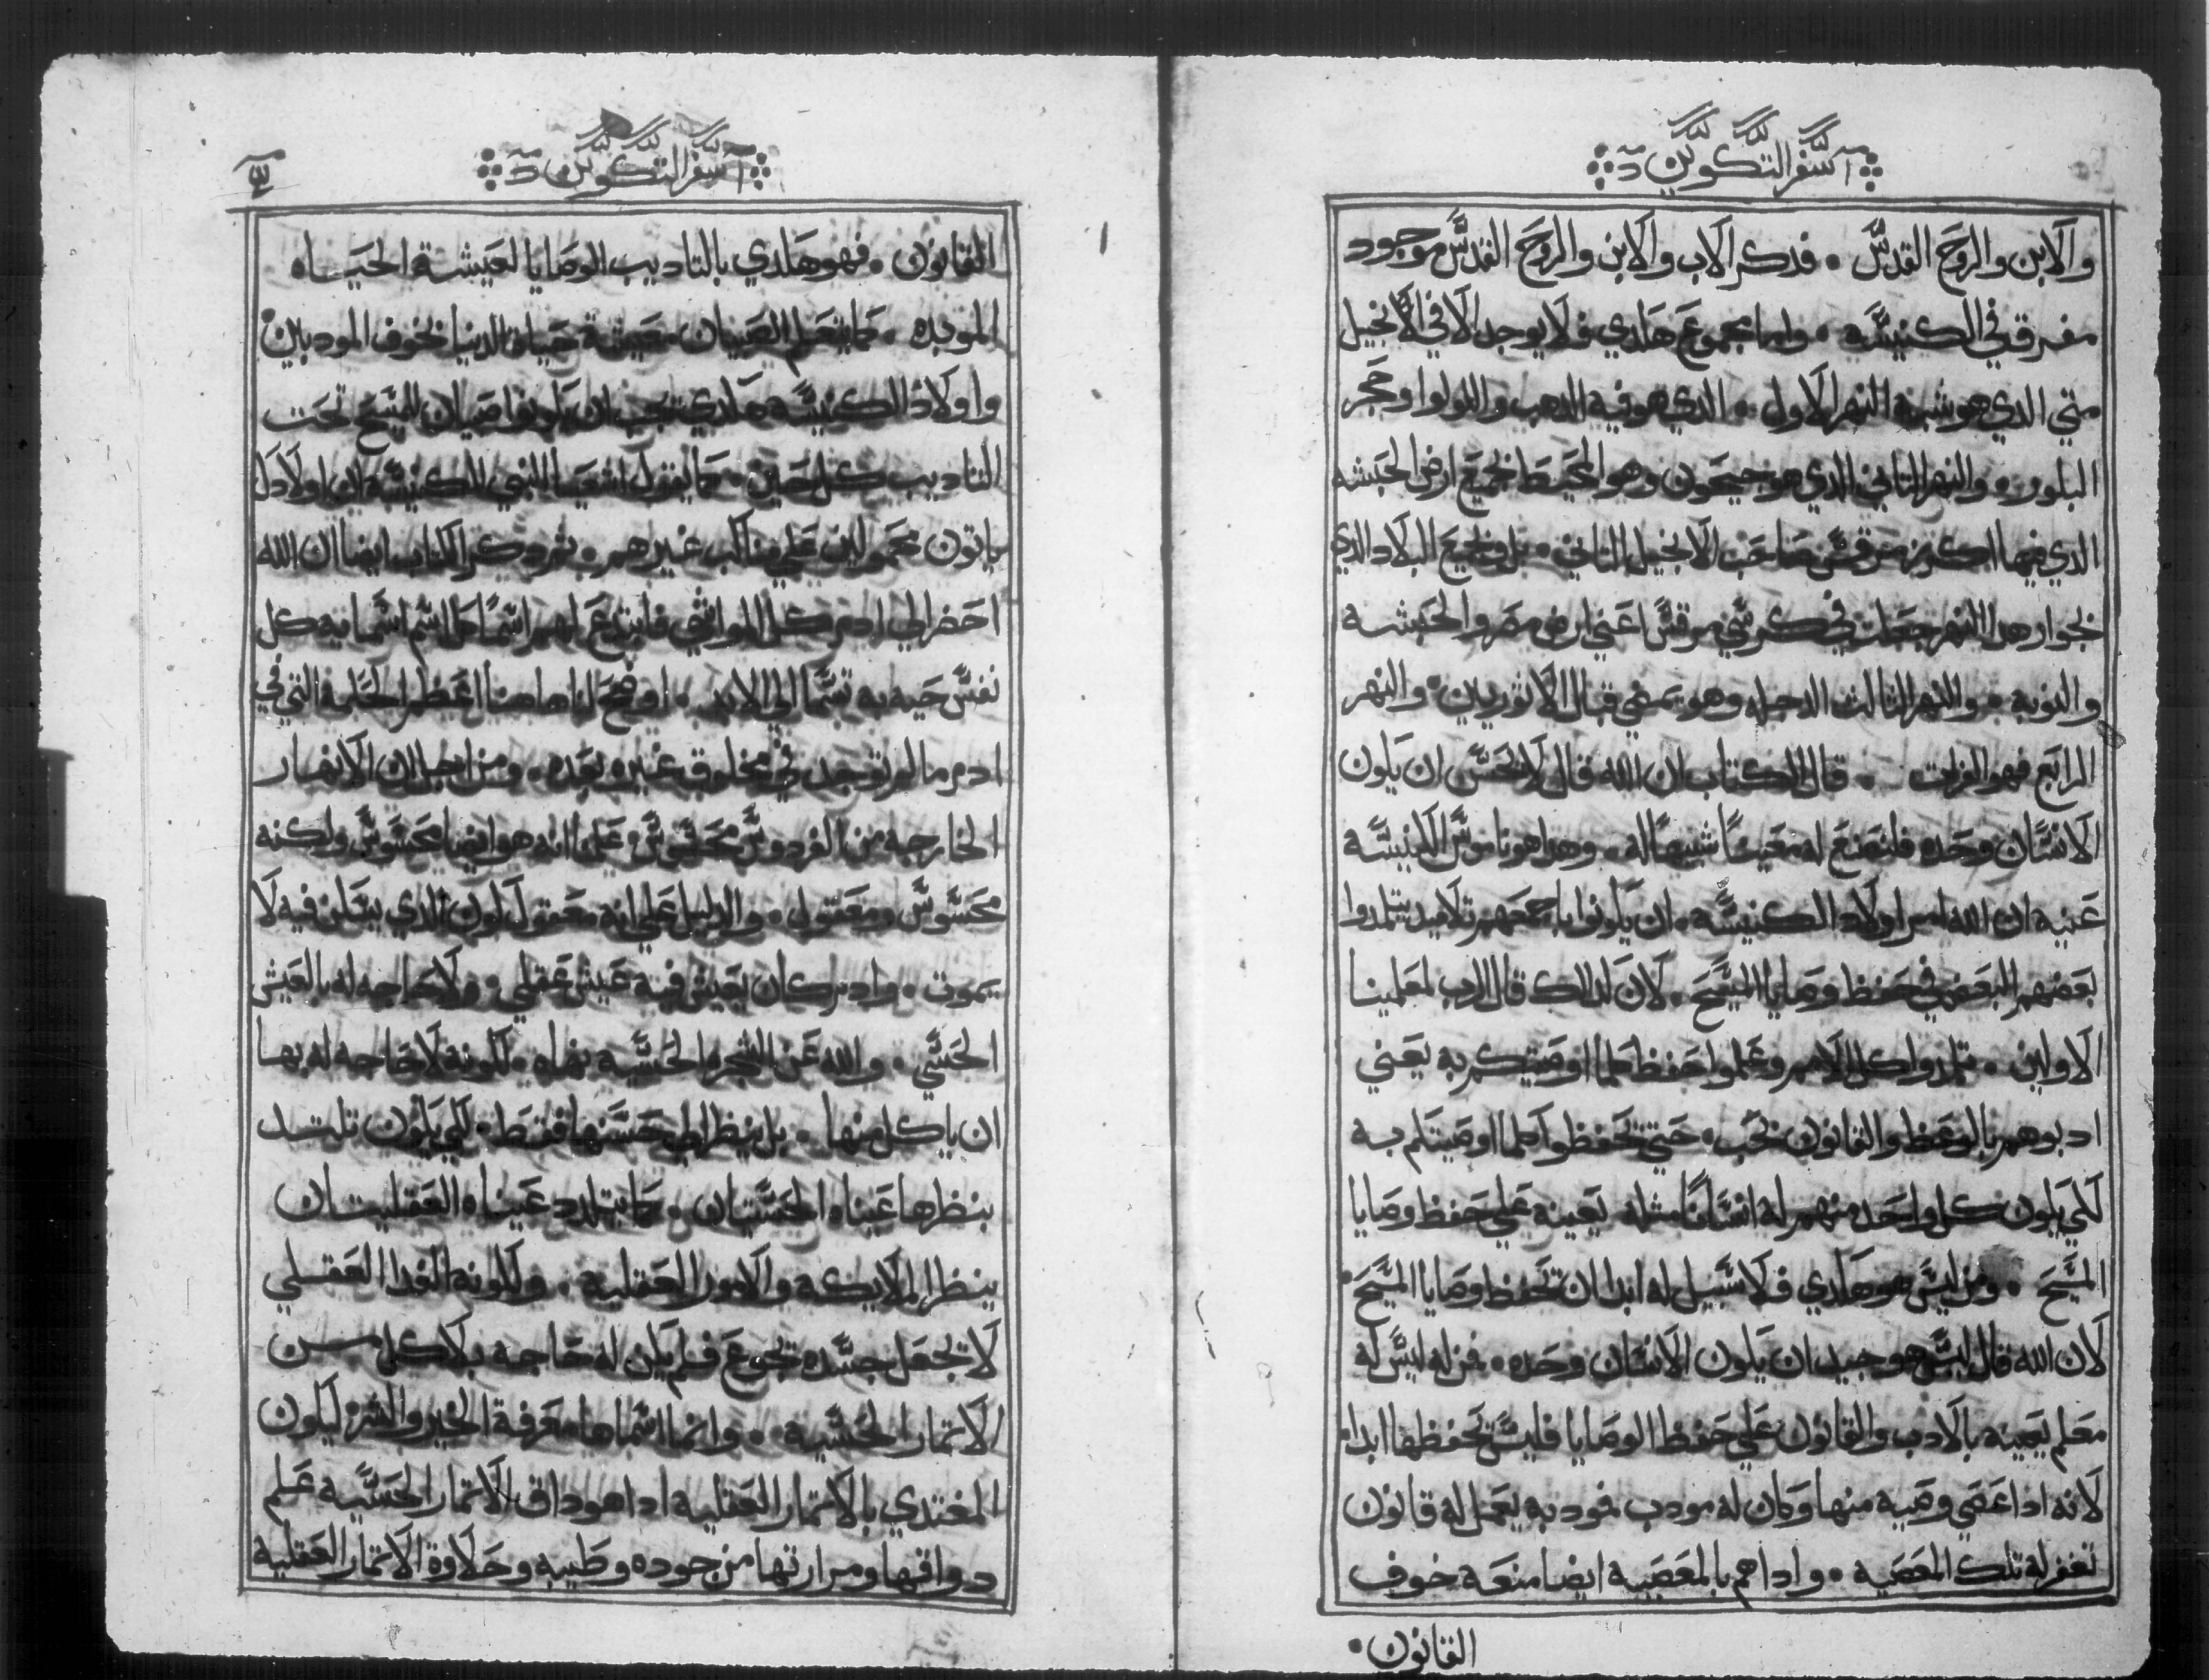 سفر التكوين
والابن والروح القدس • فدكر الاب والابن والروح القدس موجود
مفرق في الكنيسه • واما مجموع هكدي فلا يوجد الا في الانجيل
متي الدي هو شبه النهر الاول • الدي هو فيه الدهب واللولوا وحجر
البلور • والنهر التاني الدي هو جيحون وهو المحيط بجميع ارض الحبشه
الدي فيها اكرز مرقس صاحب الانجيل التاني • بل وجميع البلاد الدي
بجوار هدا النهر جعلت في كرسي مرقس اعني ارض مصر والحبشه
والنوبه • والنهر التالت الدجله وهو يمضي قبال الاثوريين • والنهر
الرابع فهو الفرات • قال الكتاب ان الله قال لا يحسن ان يكون
الانسان وحده فلنصنع له معينًا شبيهًا له • وهدا هو ناموس الكنيسه
عنيه ان الله امر اولاد الكنيسه • ان يكونوا باجمعهم تلاميد يتلمدوا
بعضهم البعض في حفظ وصايا المسيح • لان لدالك قال الرب لمعلمينا
الاولين • تلمدوا كل الامم وعلموا حفظ كلما اوصيتكم به يعني
ادبوهم بالوعظ والقانون بحب • حتي تحفظوا كلما اوصيتكم به
لكي يكون كل واحد منهم له انسانًا مثله يعينه علي حفظ وصايا
المسيح • ومن ليس هو هكدي فلا سبيل له ابدا ان يحفظ وصايا المسيح •
لان الله قال ليس هو جيد ان يكون الانسان وحده • فمن له ليس له
معلم يعينه بالادب والقانون علي حفظ الوصايا فليس يحفظها ابدا •
لانه ادا عصي وصيه منها وكان له مودب فمودبه يعمل له قانون
تغفر له تلك المعصيه • وادا هم بالمعصيه ايضا منعه خوف
القانون •
سفر التكوين
القانون • فهو هكدي بالتاديب الوصايا لعيشة الحياه
الموبده • كما يتعلم الصبيان معيشة حياة الدنيا بخوف المودبين •
واولاد الكنيسه هكدي يجب ان يكونوا صبيان المسيح تحت
التاديب كل حين • كما يقول اشعيا النبي للكنيسه ان اولادك
ياتون محمولين علي مناكب غيرهم • ثم دكر الكتاب ايضا ان الله
احضر الي ادم كل المواشي فابتدع لهم اسمًا كل اسم اسماه به كل
نفس حيه به تسما الي الابد • اوضح لنا هاهنا اعظم الحكمه التي في
ادم ما لم توجد في مخلوق غيره بعده • ومن اجل ان الانهار
الخارجه من الفردوس محسوس علمنا انه هو ايضا محسوس ولكنه
محسوس ومعقول • والدليل علي انه معقول لكون الدي يسكن فيه لا
يموت • وادم كان يعيش فيه عيش عقلي • ولا حاجه له بالعيش
الحسي • والله عن الشجره الحسيه نهاه • لكونه لا حاجه له بها
ان ياكل منها • بل ينظر الي حسنها فقط • لكي يكون تلتد
بنظرها عيناه الحسيتان • كما يتلدد عيناه العقليتان
ينظر الملايكه والامور العقليه • ولكونه الغدا العقلي
لا يجعل جسده يجوع فلم يكن له حاجه بلاكل من
الاتمار الحسيه • وانما اسماها معرفة الخير والشر ليكون
المغتدي بالاتمار العقليه ادا هو داق الاتمار الحسيه علم
دواقها ومرارتها من جوده وطيبه وحلاوة الاتمار العقليه